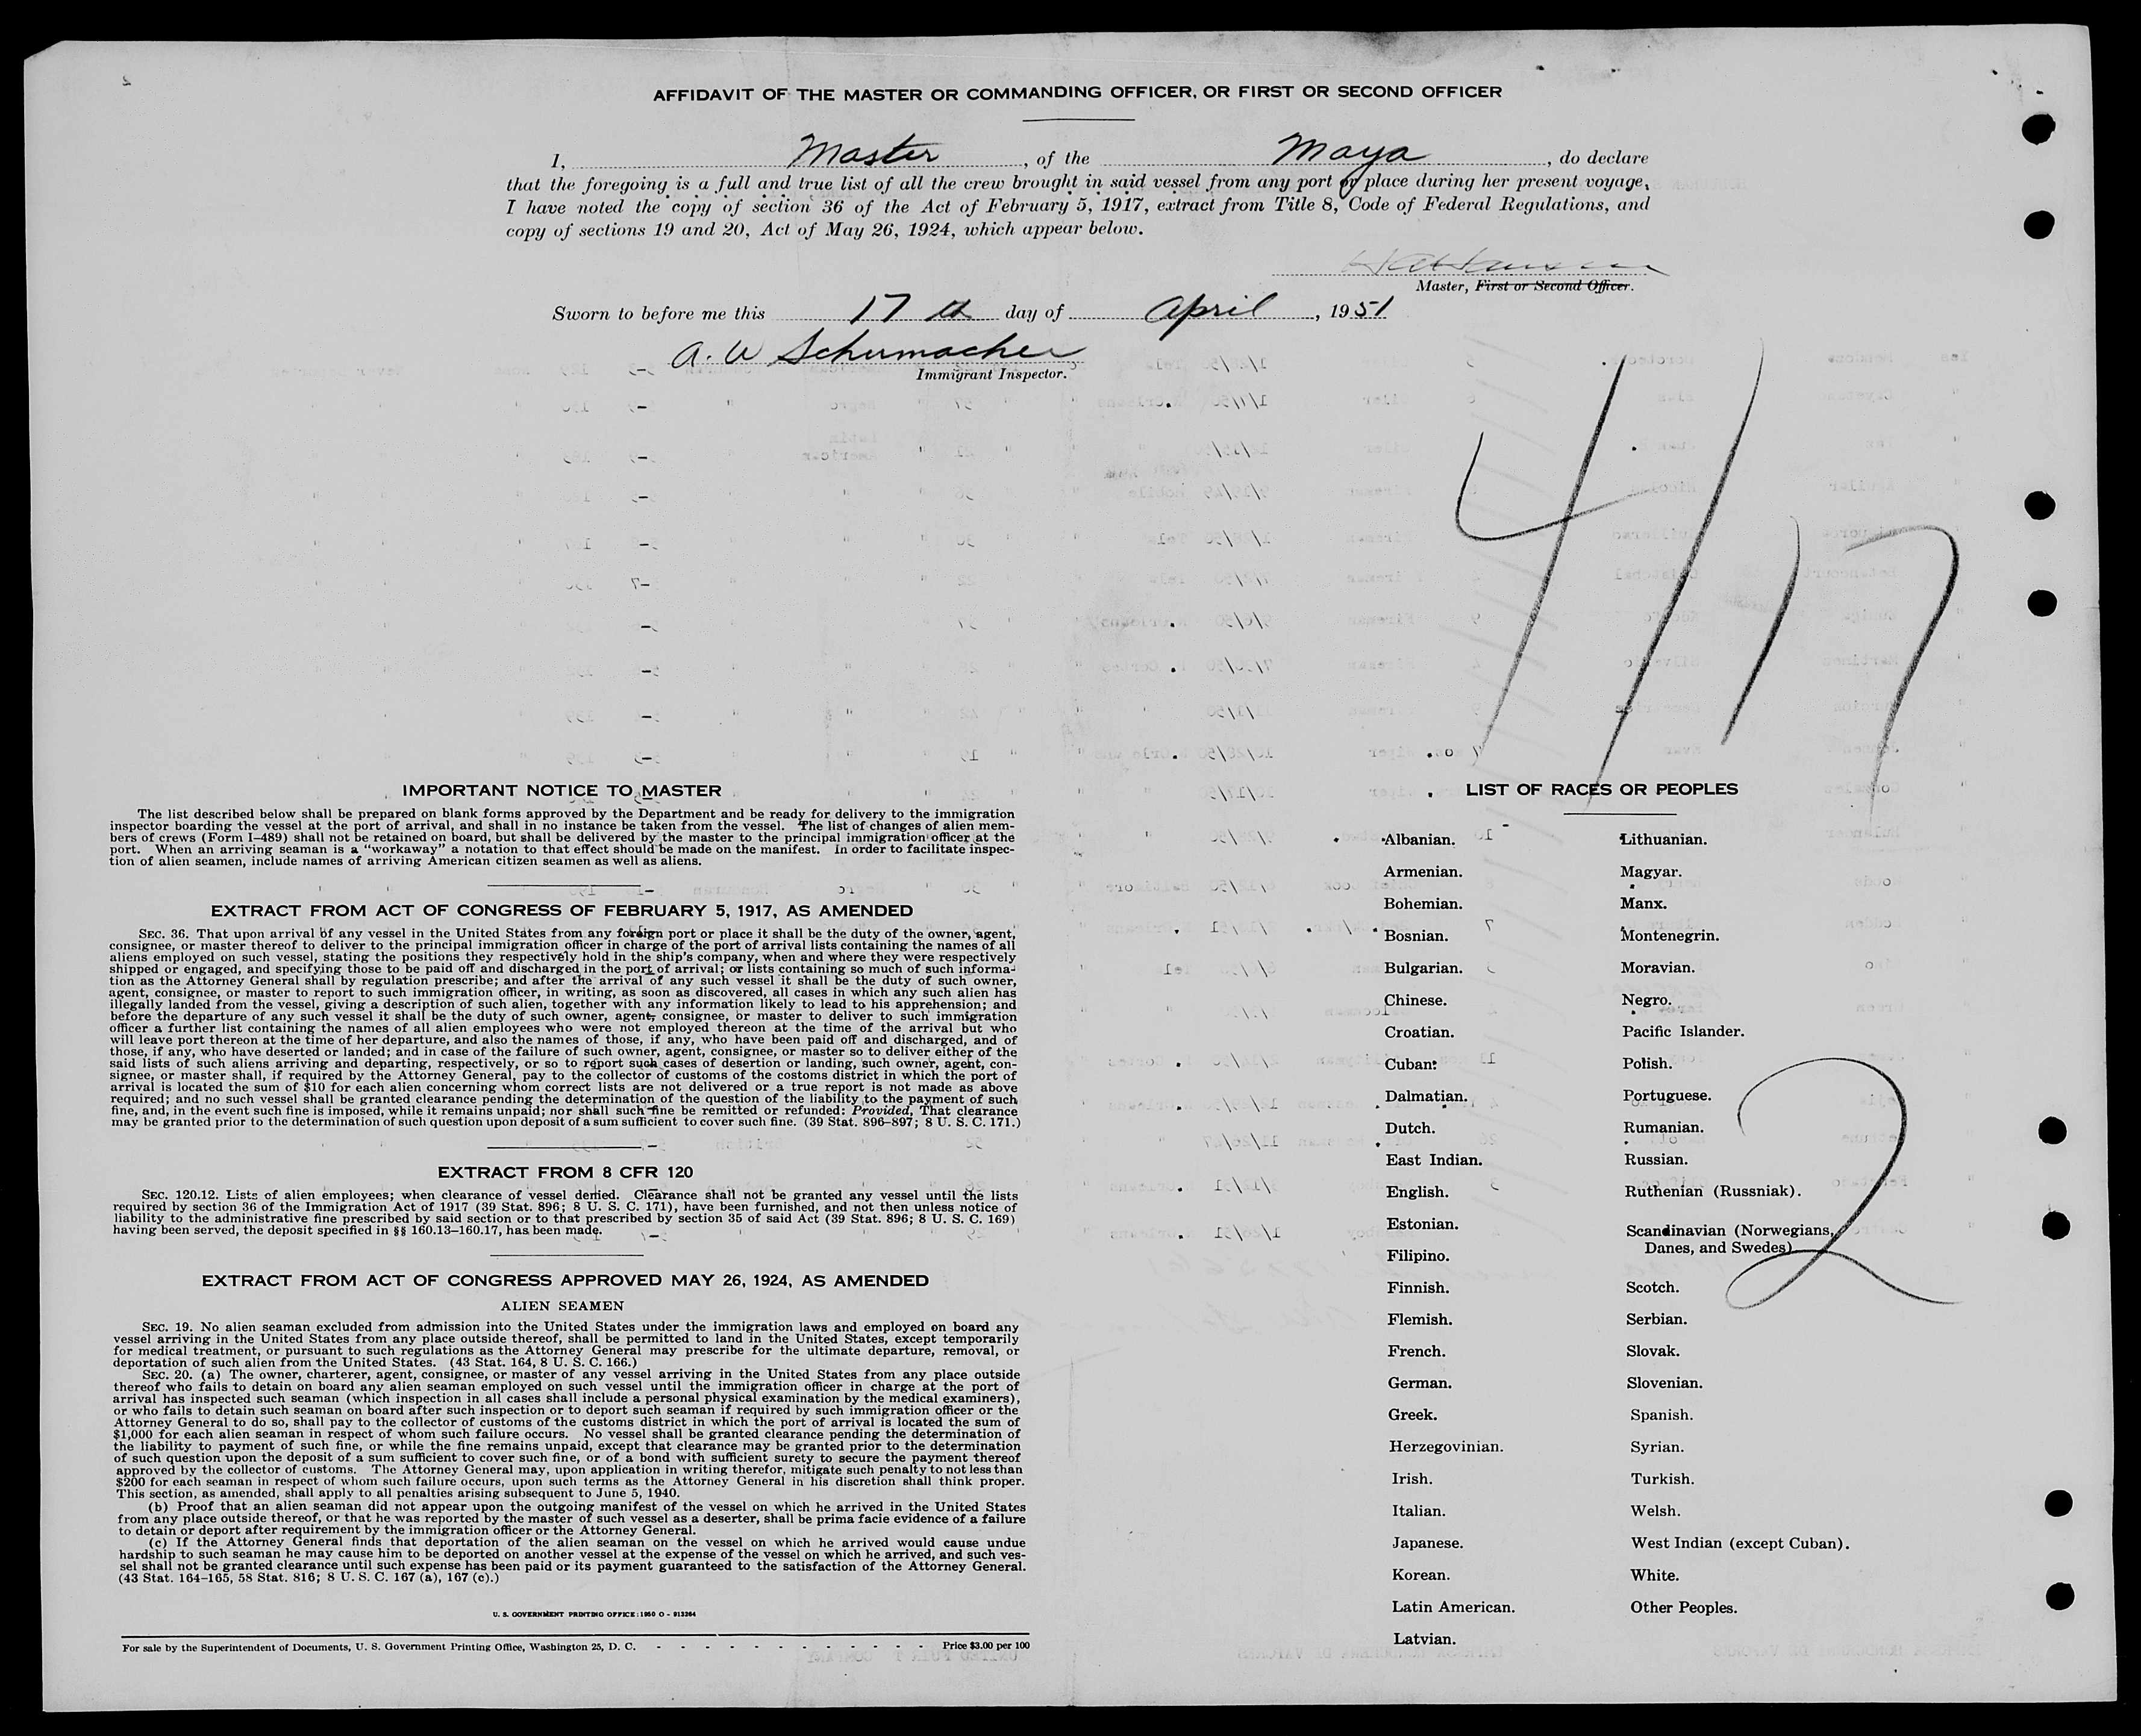 AFFIDAVIT OF THE MASTER OR COMMANDING OFFICER, OR FIRST OR SECOND OFFICER
I, Master, of the Maya, do declare
that the foregoing is a full and true list of all the crew brought in said vessel from any port or place during her present voyage.
I have noted the copy of section 36 of the Act of February 5, 1917, extract from Title 8, Code of Federal Regulations, and
copy of sections 19 and 20, Act of May 26, 1924, which appear below.
Master, First or Second Officer.
Sworn to before me this 17th day of April, 1951
A. W Schumacher
Immigrant Inspector.
4/17
IMPORTANT NOTICE TO MASTER
The list described below shall be prepared on blank forms approved by the Department and be ready for delivery to the immigration
inspector boarding the vessel at the port of arrival, and shall in no instance be taken from the vessel. The list of changes of alien mem-
bers of crews (Form I–489) shall not be retained on board, but shall be delivered by the master to the principal immigration officer at the
port. When an arriving seaman is a “workaway” a notation to that effect should be made on the manifest. In order to facilitate inspec-
tion of alien seamen, include names of arriving American citizen seamen as well as aliens.
EXTRACT FROM ACT OF CONGRESS OF FEBRUARY 5, 1917, AS AMENDED
SEC. 36. That upon arrival of any vessel in the United States from any foreign port or place it shall be the duty of the owner, agent,
consignee, or master thereof to deliver to the principal immigration officer in charge of the port of arrival lists containing the names of all
aliens employed on such vessel, stating the positions they respectively hold in the ship’s company, when and where they were respectively
shipped or engaged, and specifying those to be paid off and discharged in the port of arrival; or lists containing so much of such informa-
tion as the Attorney General shall by regulation prescribe; and after the arrival of any such vessel it shall be the duty of such owner,
agent, consignee, or master to report to such immigration officer, in writing, as soon as discovered, all cases in which any such alien has
illegally landed from the vessel, giving a description of such alien, together with any information likely to lead to his apprehension; and
before the departure of any such vessel it shall be the duty of such owner, agent, consignee, or master to deliver to such immigration
officer a further list containing the names of all alien employees who were not employed thereon at the time of the arrival but who
will leave port thereon at the time of her departure, and also the names of those, if any, who have been paid off and discharged, and of
those, if any, who have deserted or landed; and in case of the failure of such owner, agent, consignee, or master so to deliver either of the
said lists of such aliens arriving and departing, respectively, or so to report such cases of desertion or landing, such owner, agent, con-
signee, or master shall, if required by the Attorney General, pay to the collector of customs of the costoms district in which the port of
arrival is located the sum of $10 for each alien concerning whom correct lists are not delivered or a true report is not made as above
required; and no such vessel shall be granted clearance pending the determination of the question of the liability to the payment of such
fine, and, in the event such fine is imposed, while it remains unpaid; nor shall such fine be remitted or refunded: Provided, That clearance
may be granted prior to the determination of such question upon deposit of a sum sufficient to cover such fine. (39 Stat. 896–897; 8 U. S. C. 171.)
EXTRACT FROM 8 CFR 120
SEC. 120.12. Lists of alien employees; when clearance of vessel denied. Clearance shall not be granted any vessel until the lists
required by section 36 of the Immigration Act of 1917 (39 Stat. 896; 8 U. S. C. 171), have been furnished, and not then unless notice of
liability to the administrative fine prescribed by said section or to that prescribed by section 35 of said Act (39 Stat. 896; 8 U. S. C. 169)
having been served, the deposit specified in §§ 160.13–160.17, has been made.
EXTRACT FROM ACT OF CONGRESS APPROVED MAY 26, 1924, AS AMENDED
ALIEN SEAMEN
SEC. 19. No alien seaman excluded from admission into the United States under the immigration laws and employed on board any
vessel arriving in the United States from any place outside thereof, shall be permitted to land in the United States, except temporarily
for medical treatment, or pursuant to such regulations as the Attorney General may prescribe for the ultimate departure, removal, or
deportation of such alien from the United States. (43 Stat. 164, 8 U. S. C. 166.)
SEC. 20. (a) The owner, charterer, agent, consignee, or master of any vessel arriving in the United States from any place outside
thereof who fails to detain on board any alien seaman employed on such vessel until the immigration officer in charge at the port of
arrival has inspected such seaman (which inspection in all cases shall include a personal physical examination by the medical examiners),
or who fails to detain such seaman on board after such inspection or to deport such seaman if required by such immigration officer or the
Attorney General to do so, shall pay to the collector of customs of the customs district in which the port of arrival is located the sum of
$1,000 for each alien seaman in respect of whom such failure occurs. No vessel shall be granted clearance pending the determination of
the liability to payment of such fine, or while the fine remains unpaid, except that clearance may be granted prior to the determination
of such question upon the deposit of a sum sufficient to cover such fine, or of a bond with sufficient surety to secure the payment thereof
approved by the collector of customs. The Attorney General may, upon application in writing therefor, mitigate such penalty to not less than
$200 for each seaman in respect of whom such failure occurs, upon such terms as the Attorney General in his discretion shall think proper.
This section, as amended, shall apply to all penalties arising subsequent to June 5, 1940.
(b) Proof that an alien seaman did not appear upon the outgoing manifest of the vessel on which he arrived in the United States
from any place outside thereof, or that he was reported by the master of such vessel as a deserter, shall be prima facie evidence of a failure
to detain or deport after requirement by the immigration officer or the Attorney General.
(c) If the Attorney General finds that deportation of the alien seaman on the vessel on which he arrived would cause undue
hardship to such seaman he may cause him to be deported on another vessel at the expense of the vessel on which he arrived, and such ves-
sel shall not be granted clearance until such expense has been paid or its payment guaranteed to the satisfaction of the Attorney General.
(43 Stat. 164–165, 58 Stat. 816; 8 U. S. C. 167 (a), 167 (c).)
U. S. GOVERNMENT PRINTING OFFICE: 1950 O - 913264
For sale by the Superintendent of Documents, U. S. Government Printing Office, Washington 25, D. C. - - - - - - - - - - - - Price $3.00 per 100
LIST OF RACES OR PEOPLES
Albanian.
Armenian.
Bohemian.
Bosnian.
Bulgarian.
Chinese.
Croatian.
Cuban.
Dalmatian.
Dutch.
East Indian.
English.
Estonian.
Filipino.
Finnish.
Flemish.
French.
German.
Greek.
Herzegovinian.
Irish.
Italian.
Japanese.
Korean.
Latin American.
Latvian.
Lithuanian.
Magyar.
Manx.
Montenegrin.
Moravian.
Negro.
Pacific Islander.
Polish.
Portuguese.
Rumanian.
Russian.
Ruthenian (Russniak).
Scandinavian (Norwegians,
Danes, and Swedes)
Scotch.
Serbian.
Slovak.
Slovenian.
Spanish.
Syrian.
Turkish.
Welsh.
West Indian (except Cuban).
White.
Other Peoples.
2